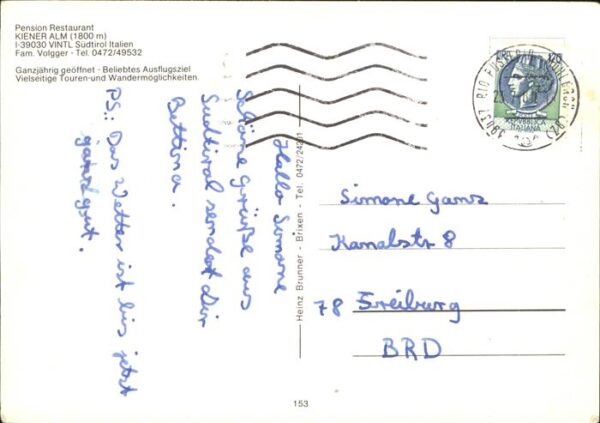 Pension Restaurant
KIENER ALM (1800 m)
I-39030 VINTL Südtirol Italien
Fam. Volgger - Tel. 0472/49532
Ganzjährig geöffnet - Beliebtes Ausflugsziel
Vielseitige Touren- und Wandermöglichkeiten.
Hallo Simone
Schöne grüße aus
Suedtirol sendet Dir
Bettina.
PS: Das Wetter ist bis jetzt
ganz gut.
Heinz Brunner - Brixen - Tel. 0472/24201
153
39037 RIO PUSTERIA
REPUBBLICA
ITALIANA
Simone Ganz
Kanalstr 8
78 Freiburg
BRD